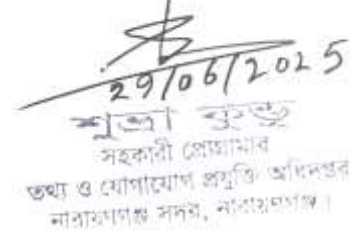 29/06/2025
শুভ্রা কুন্ডু
সহকারী প্রোগ্রামার
তথ্য ও যোগাযোগ প্রযুক্তি অধিদপ্তর
নারায়ণগঞ্জ সদর, নারায়ণগঞ্জ।